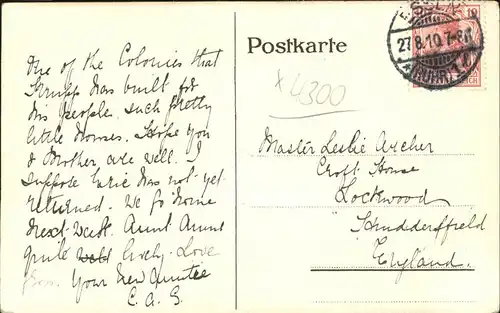 One of the Colonies that
Krupp has built for
his people. such pretty
little houses. Hope you
& Mother are well. I
suppose Eric has not yet
returned. We go home
next week. Aunt Annie
quite well lively. Love
from Your New Auntie
C. A. G.
Postkarte
× 4300
10
27.8.10.7-8
(RUHR)
Master Leslie Archer
Croft House
Lockwood
Huddersfield
England.